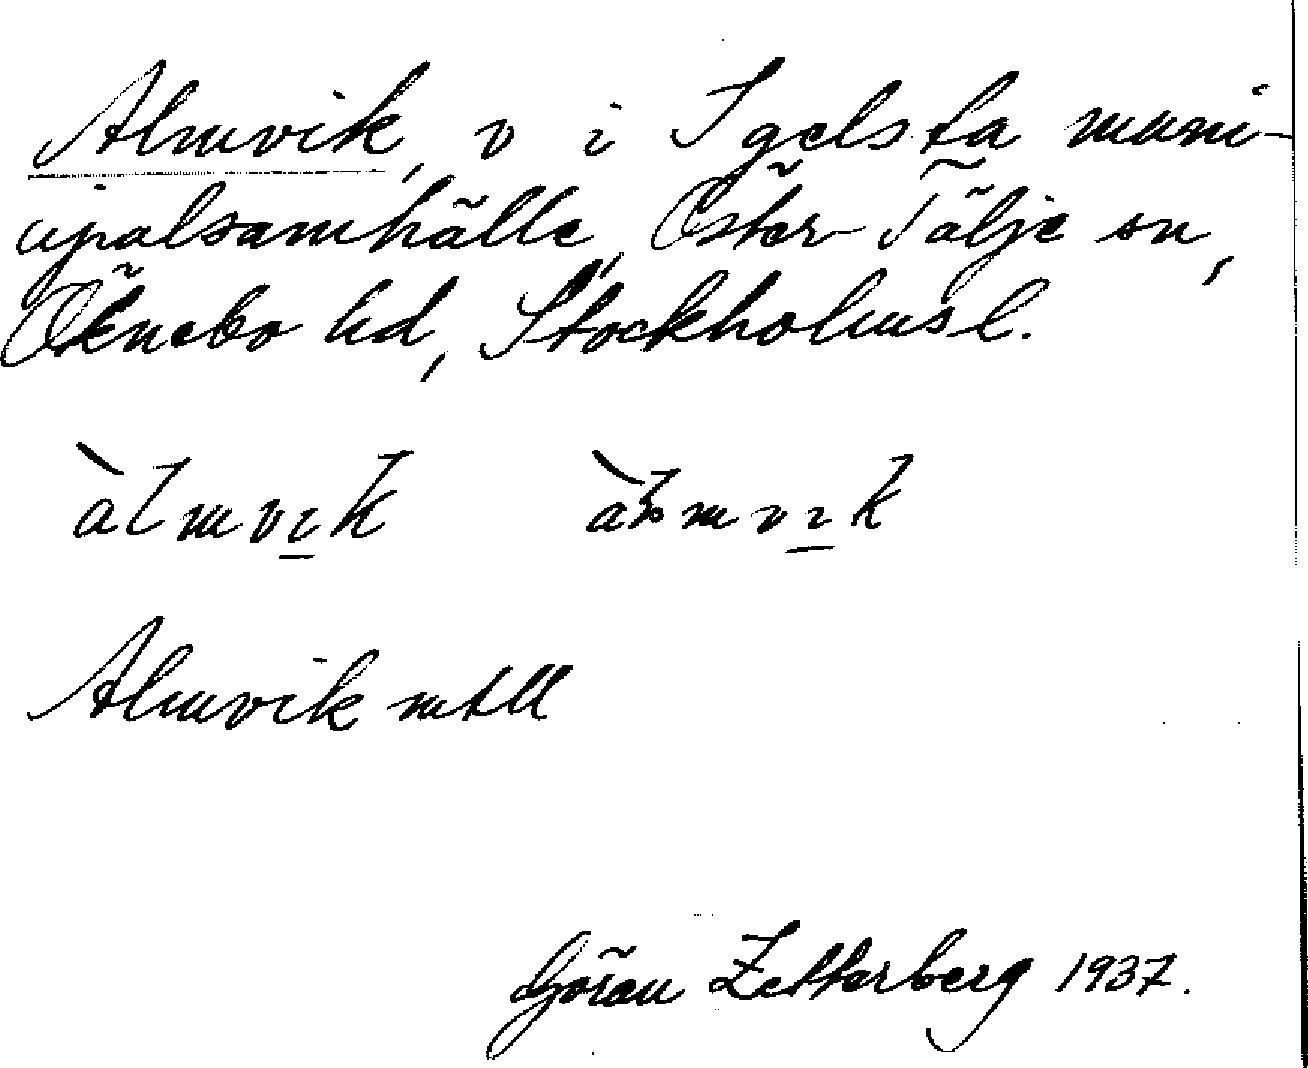 Almvik, v i Igelsta muni-
cipalsamhälle, Öster Tälje sn,
Öknebo hd, Stockholms l.
àlmvik àlmvik
Almvik mtll
Göran Zetterberg 1937.